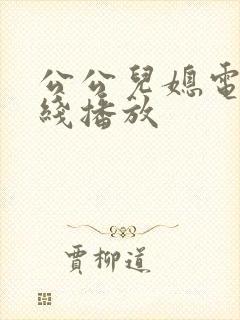 公公兒媳電
綫播放
賈柳道